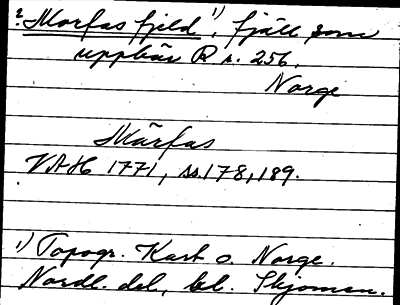 ? Morfas fjeld, ¹) fjäll som
uppbär R s. 256.
Norge
Mårfas
VAH 1771, ss. 178, 189.
¹) Topogr. Kart o. Norge.
Nordl. del, bl. Skjomen.